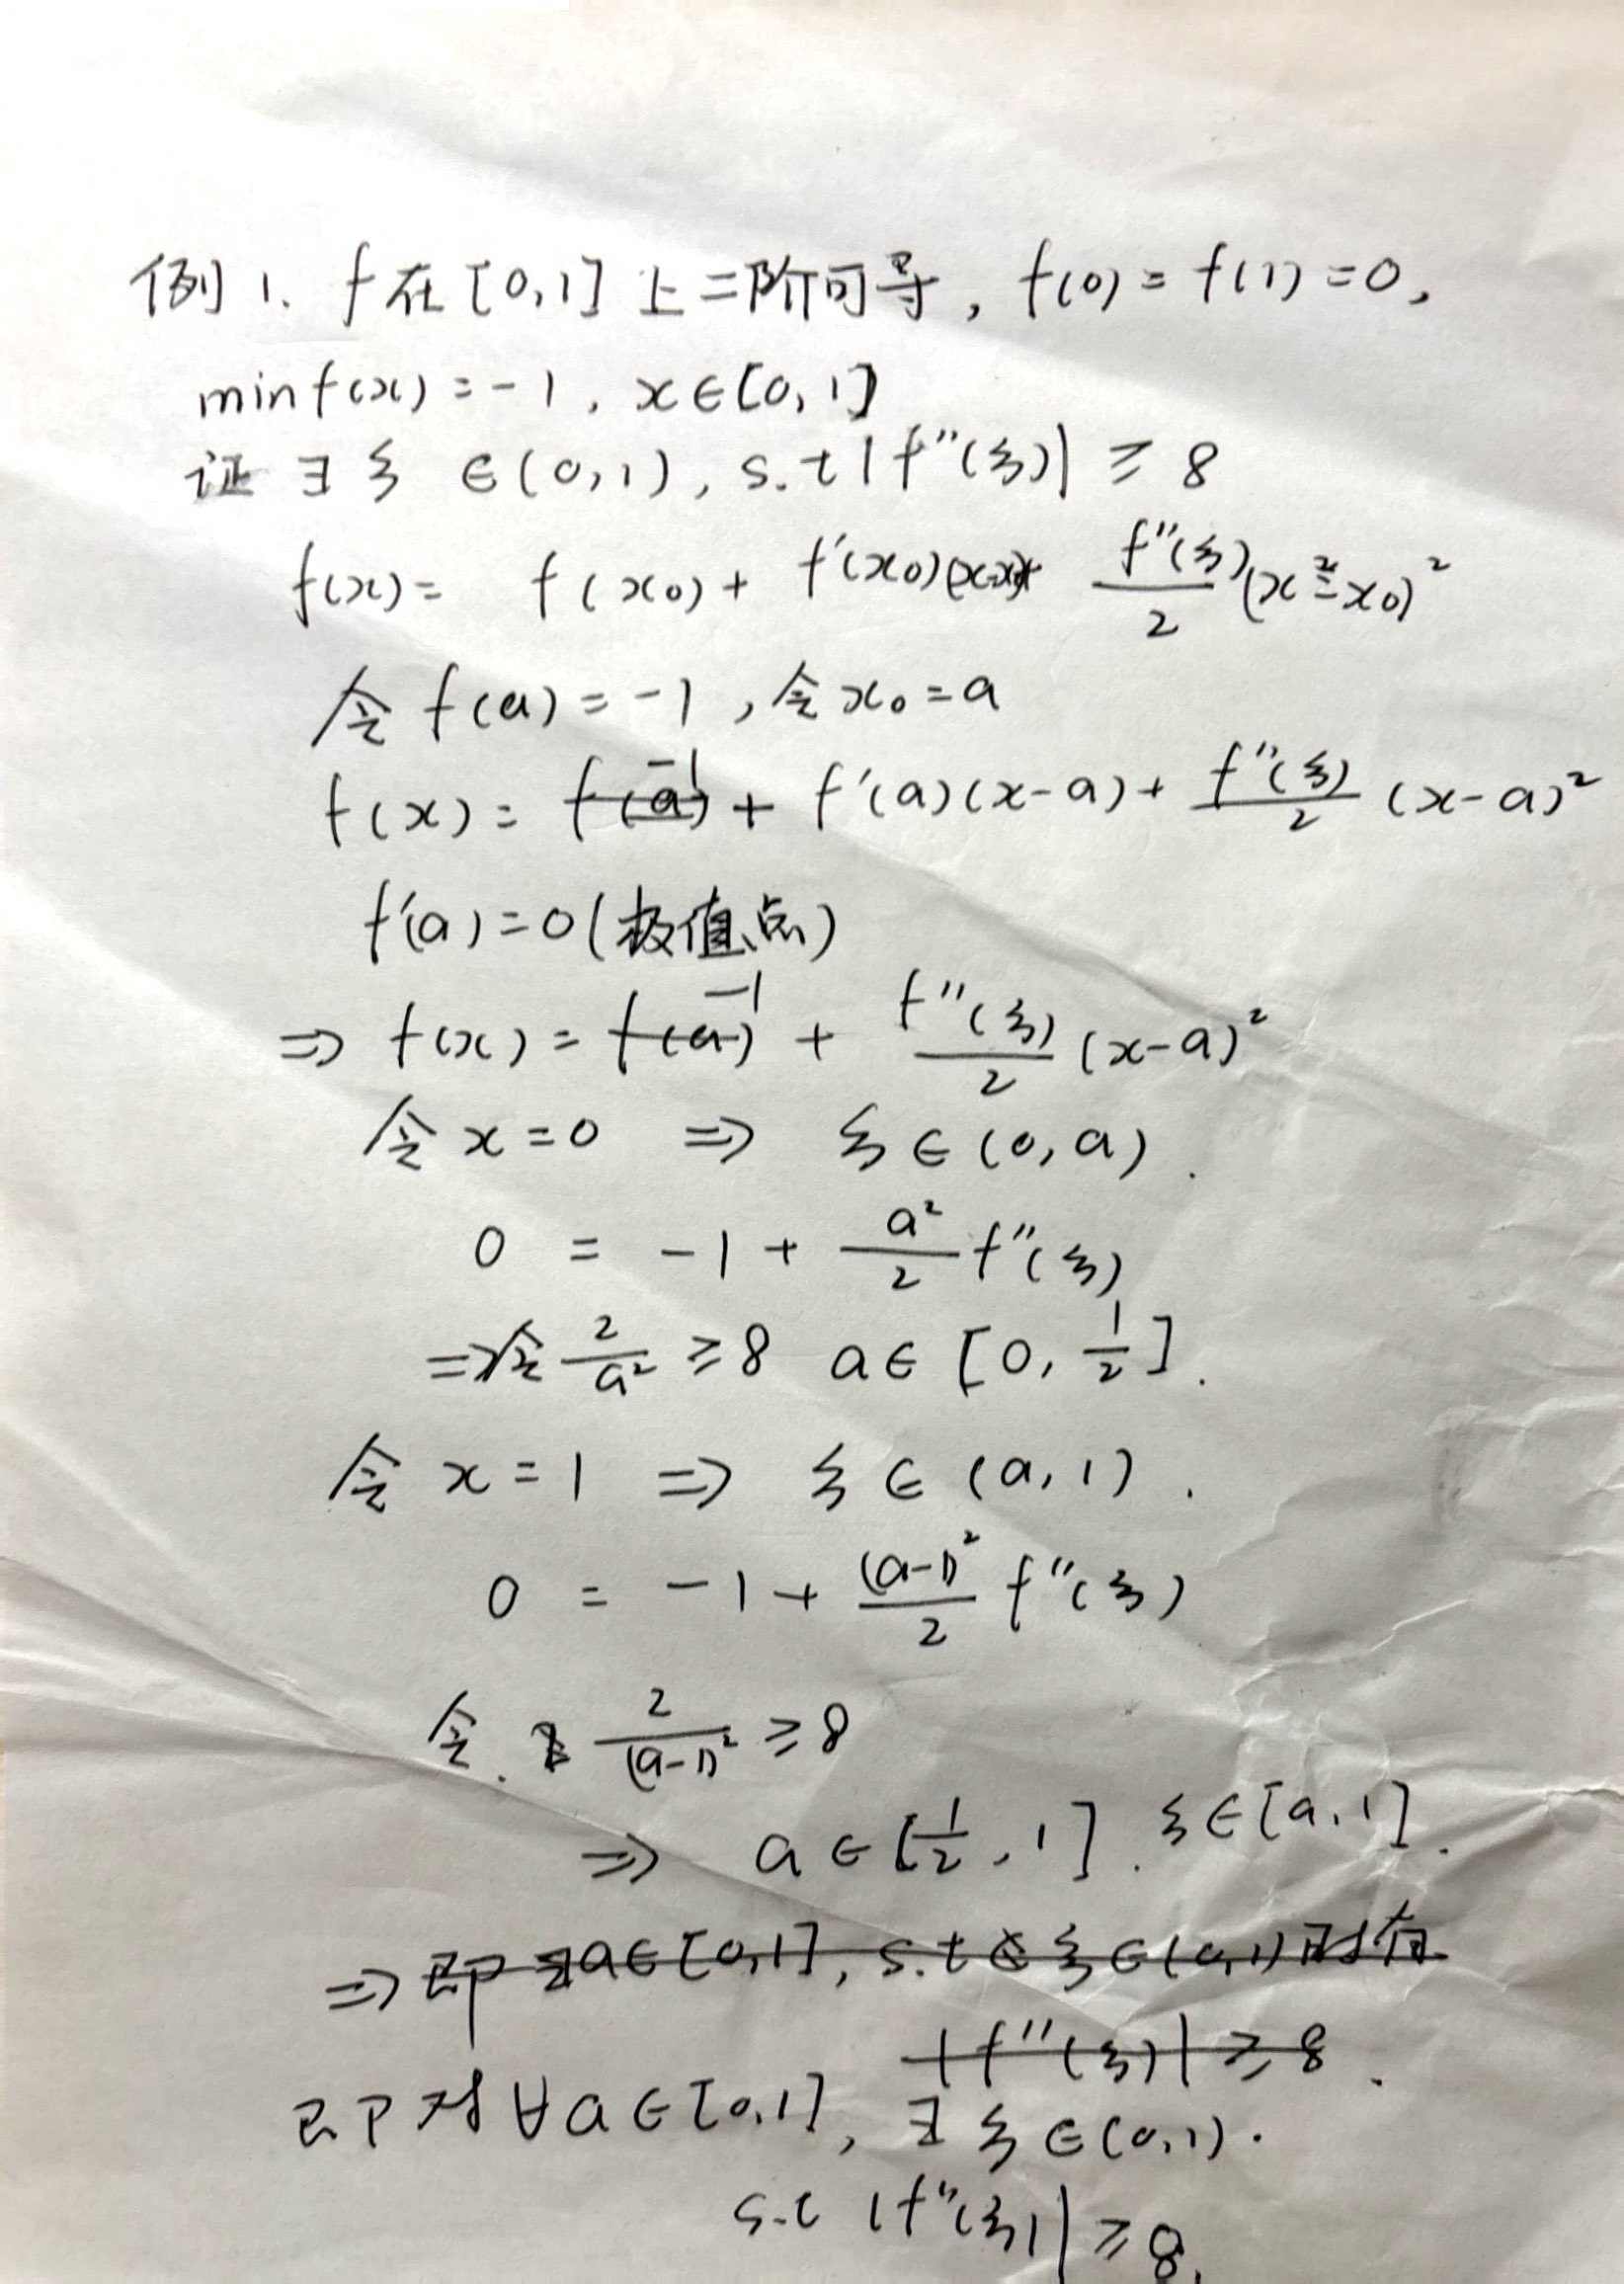 例1. f在[0,1]上二阶可导, f(0)=f(1)=0,
minf(x)=-1, x∈[0,1]
证 ∃ξ ∈(0,1), s.t |f''(ξ)| ≥ 8
f(x)= f(x₀)+ f'(x₀)(x-x₀)+ f''(ξ)/2 (x-x₀)²
令 f(a)=-1, 令x₀=a
f(x)= -1 + f'(a)(x-a)+ f''(ξ)/2 (x-a)²
f'(a)=0(极值点)
⇒ f(x)= -1 + f''(ξ)/2 (x-a)²
令 x=0 ⇒ ξ∈(0,a).
0 = -1 + a²/2 f''(ξ)
⇒令 2/a² ≥8 a∈[0,1/2].
令 x=1 ⇒ ξ∈(a,1).
0 = -1 + (a-1)²/2 f''(ξ)
令. 2/(a-1)² ≥8
⇒ a∈[1/2,1]. ξ∈[a,1].
⇒ 即∃a∈[0,1], s.t ξ∈(0,1)时有
|f''(ξ)|≥8.
即对∀a∈[0,1], ∃ξ∈(0,1).
s.t |f''(ξ)|≥8.